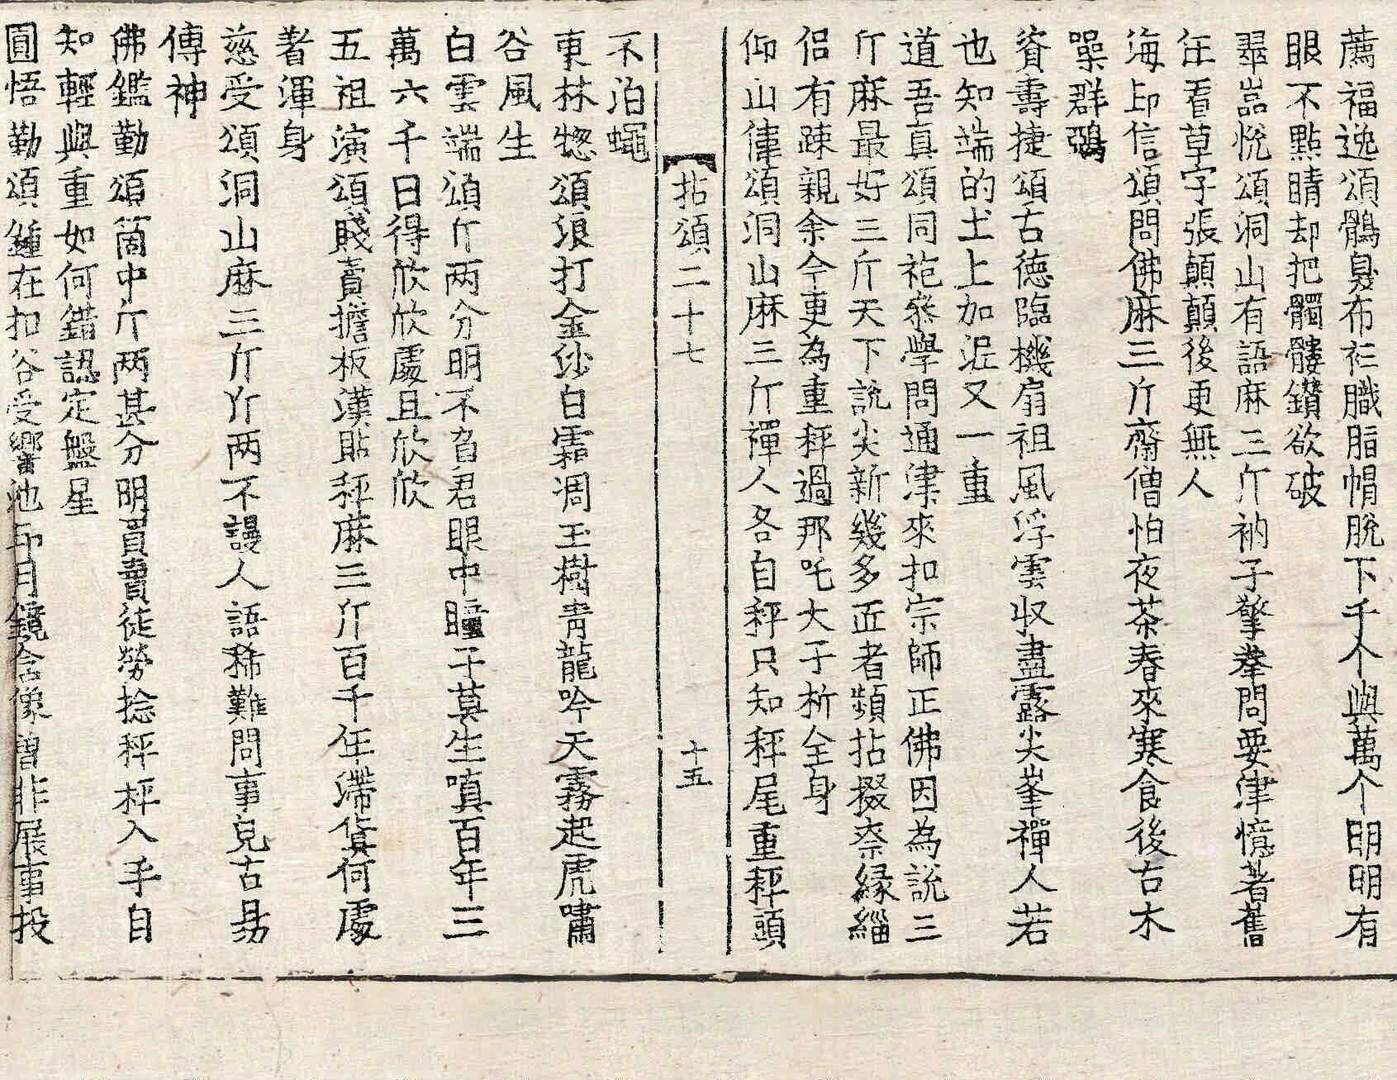 薦福逸頌鶻臭布衫膱脂帽脫下千个與萬个明明有
眼不點睛却把髑髏鑽欲破
翠嵓悅頌洞山有語麻三斤衲子擎拳問要津憶著舊
年看草字張顛顛後更無人
海印信頌問佛麻三斤齋僧怕夜茶春來寒食後古木
噪群鵶
資壽捷頌古德臨機扇祖風浮雲収盡露尖峯禪人若
也知端的土上加泥又一重
道吾真頌同袍叅學問通津來扣宗師正佛因為說三
斤麻最好三斤天下說尖新幾多匠者頻拈掇柰縁緇
侶有疎親余今更為重秤過那吒太子析全身
仰山偉頌洞山麻三斤禪人各自秤只知秤尾重秤頭
拈頌二十七 十五
不泊蠅
東林惣頌浪打金沙白霜凋玉樹靑龍吟天霧起虎嘯
谷風生
白雲端頌斤两分明不負君眼中瞳子莫生嗔百年三
萬六千日得欣欣處且欣欣
五祖演頌賤賣擔板漢貼秤麻三斤百千年滯貨何處
著渾身
慈受頌洞山麻三斤斤两不謾人語稀難問事皃古易
傳神
佛鑑勤頌箇中斤两甚分明買賣徒勞捻秤秤入手自
知輕與重如何錯認定盤星
圓悟勤頌鍾在扣谷受響池印月鏡含像曽非展事投